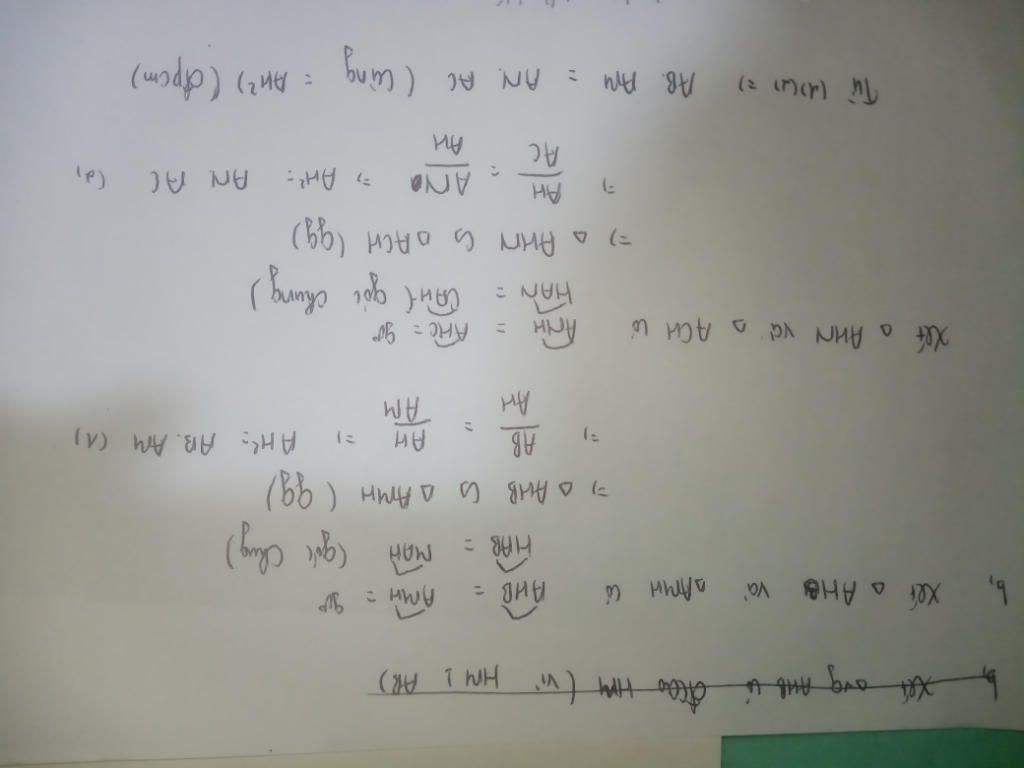 b, Xét avg AHB có đcao HM (vì HM ⊥ AB)
b, Xét △ AHB và △ AMH có AHB = AMH = 90°
HAB = MAH (góc chung)
=> △ AHB ∽ △ AMH (gg)
=> AB/AH = AH/AM => AH² = AB. AM (1)
Xét △ AHN và △ ACH có ANH = AHC = 90°
HAN = CAH (góc chung)
=> △ AHN ∽ △ ACH (gg)
=> AH/AC = AN/AH => AH² = AN AC (2)
Từ (1)(2) => AB. AM = AN. AC (cùng = AH²) (đpcm)